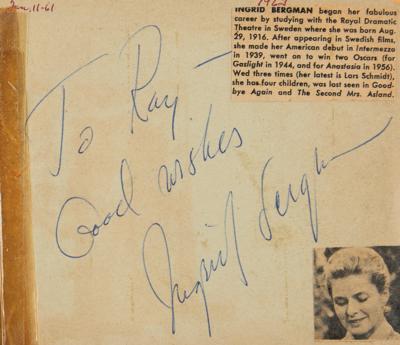 Jan, 11-61
INGRID BERGMAN began her fabulous
career by studying with the Royal Dramatic
Theatre in Sweden where she was born Aug.
29, 1916. After appearing in Swedish films,
she made her American debut in Intermezzo
in 1939, went on to win two Oscars (for
Gaslight in 1944, and for Anastasia in 1956).
Wed three times (her latest is Lars Schmidt),
she has four children, was last seen in Good-
bye Again and The Second Mrs. Asland.
To Ray –
Good wishes
Ingrid Bergman